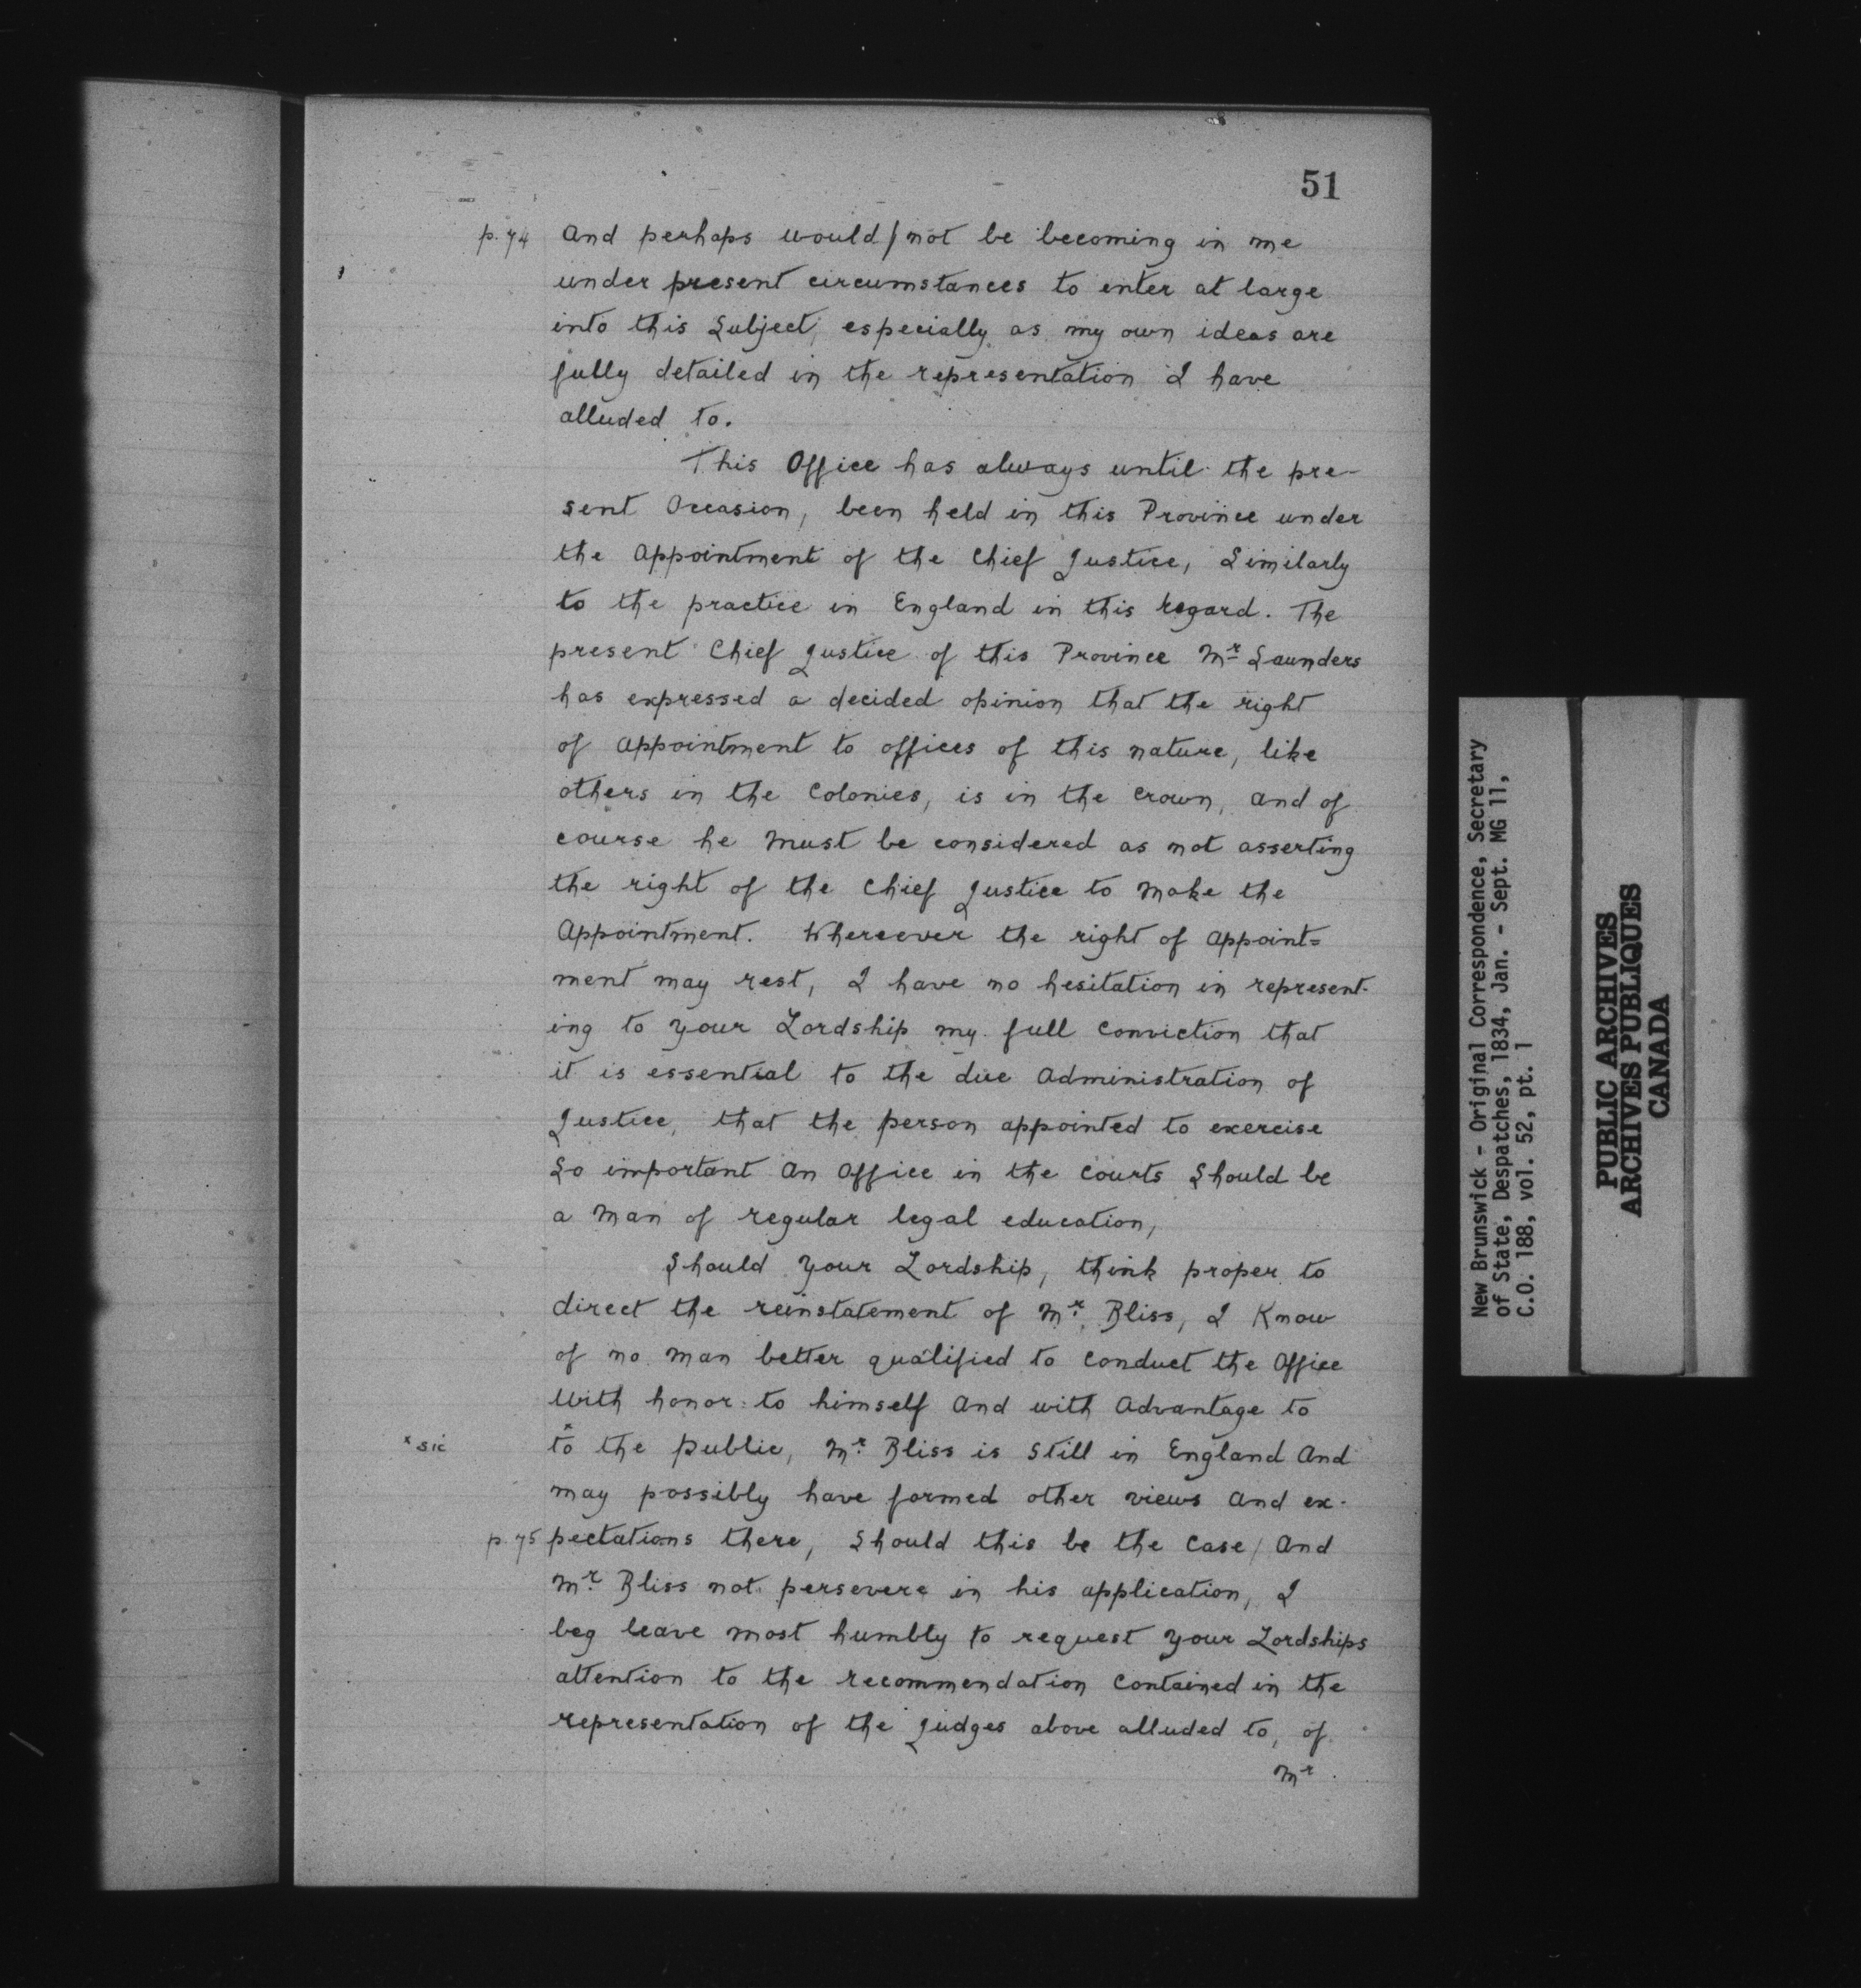 51
p. 74 and perhaps would / not be becoming in me
under present circumstances to enter at large
into this Subject, especially as my own ideas are
fully detailed in the representation I have
alluded to.
This Office has always until the pre-
sent Occasion, been held in this Province under
the Appointment of the Chief Justice, Similarly
to the practice in England in this regard. The
present Chief Justice of this Province Mr Saunders
has expressed a decided opinion that the right
of appointment to offices of this nature, like
others in the Colonies, is in the Crown, and of
course he must be considered as not asserting
the right of the Chief Justice to make the
Appointment. Whereever the right of appoint=
ment may rest, I have no hesitation in represent-
ing to your Lordship my full conviction that
it is essential to the due administration of
Justice, that the person appointed to exercise
So important an Office in the Courts Should be
a man of regular legal education,
Should your Lordship, think proper to
direct the reinstatement of Mr. Bliss, I Know
of no man better qualified to conduct the Office
with honor to himself and with Advantage to
x sic to x the public, Mr. Bliss is Still in England and
may possibly have formed other views and ex-
p. 75 pectations there, Should this be the Case / and
Mr. Bliss not persevere in his application, I
beg leave most humbly to request your Lordships
attention to the recommendation contained in the
representation of the Judges above alluded to, of
Mr
New Brunswick - Original Correspondence, Secretary
of State, Despatches, 1834, Jan. - Sept. MG 11,
C.O. 188, vol. 52, pt. 1
PUBLIC ARCHIVES
ARCHIVES PUBLIQUES
CANADA